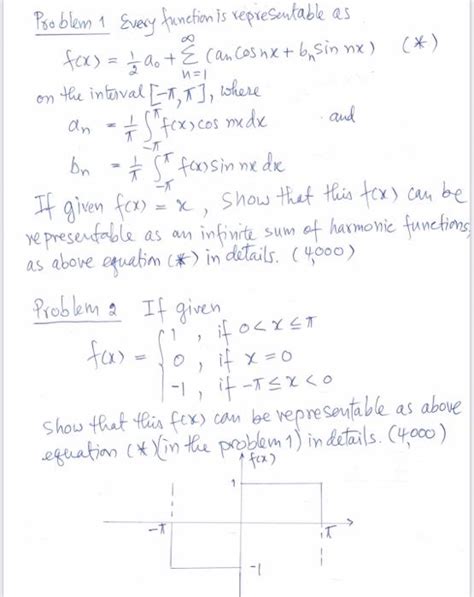 Problem 1 Every function is representable as
f(x) = 1/2 a₀ + ∞Σn=1 (aₙ cos nx + bₙ sin nx) (*)
on the interval [-π, π], where
aₙ = 1/π ∫-π^π f(x) cos nx dx and
bₙ = 1/π ∫-π^π f(x) sin nx dx
If given f(x) = x, show that this f(x) can be
representable as an infinite sum of harmonic functions,
as above equation (*) in details. (4,000)
Problem 2 If given
f(x) = { 1, if 0 < x ≤ π
0, if x = 0
-1, if -π ≤ x < 0
show that this f(x) can be representable as above
equation (*)(in the problem 1) in details. (4,000)
f(x)
1
-π π
-1